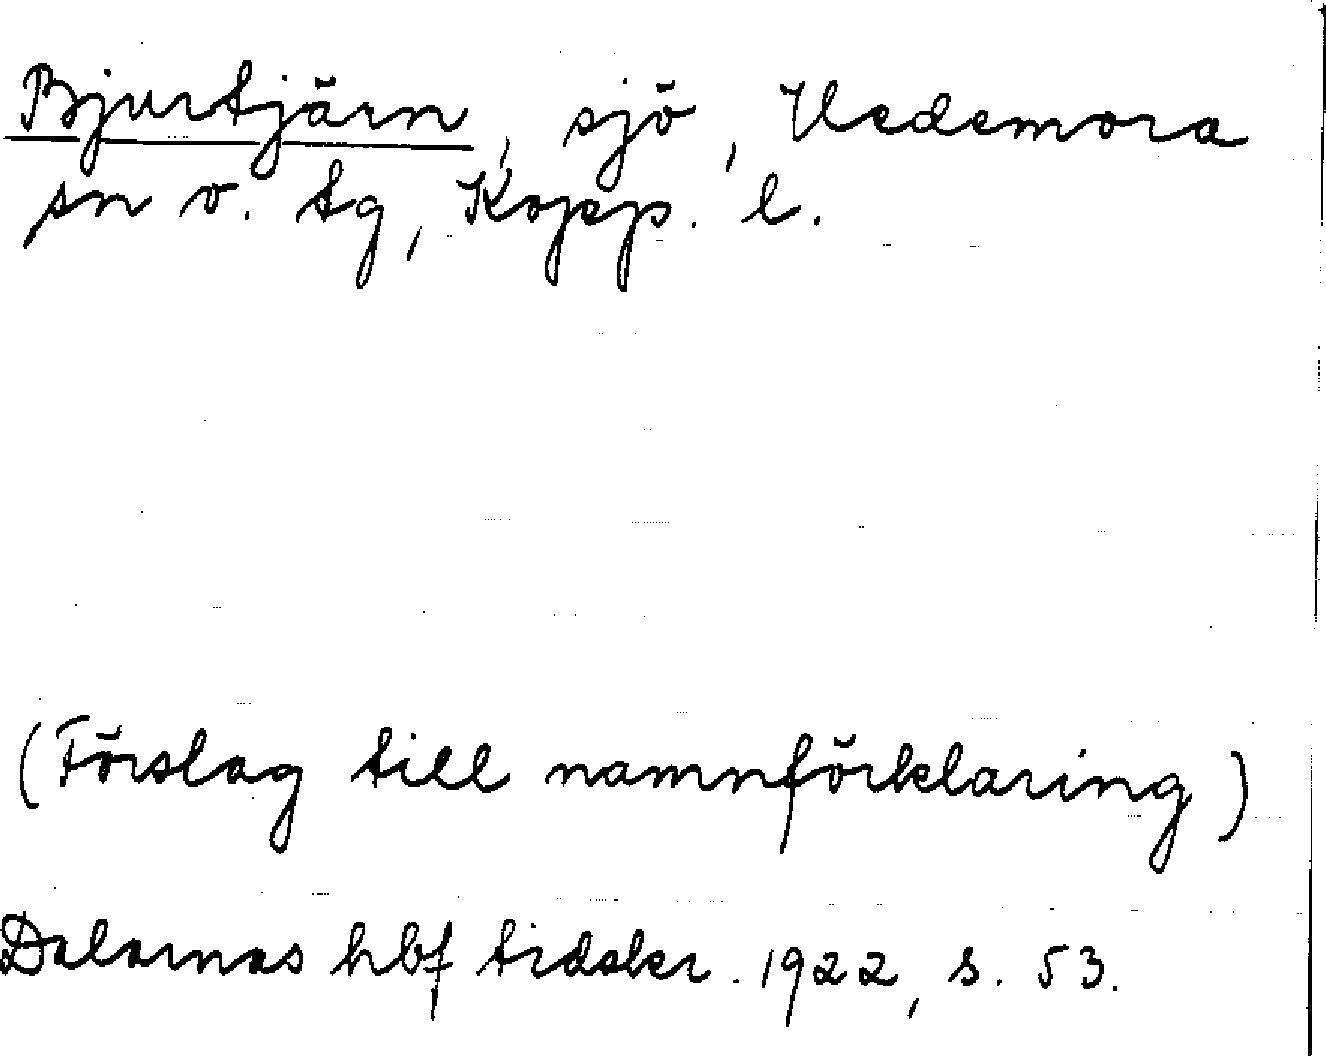 Bjurtjärn, sjö, Hedemora
sn o. tg, Kopp. l.
(Förslag till namnförklaring)
Dalarnas hbf tidskr. 1922, s. 53.